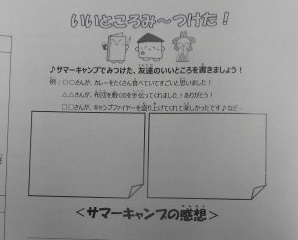 いいところみ〜つけた！
♪サマーキャンプでみつけた、友達のいいところを書きましょう！
例：○○さんが、カレーをたくさん食べていてすごいと思いました！
△△さんが、布団を敷くのを手伝ってくれました！ありがとう！
□□さんが、キャンプファイヤーを盛り上げてくれて楽しかったです♪など…
＜サマーキャンプの感想＞